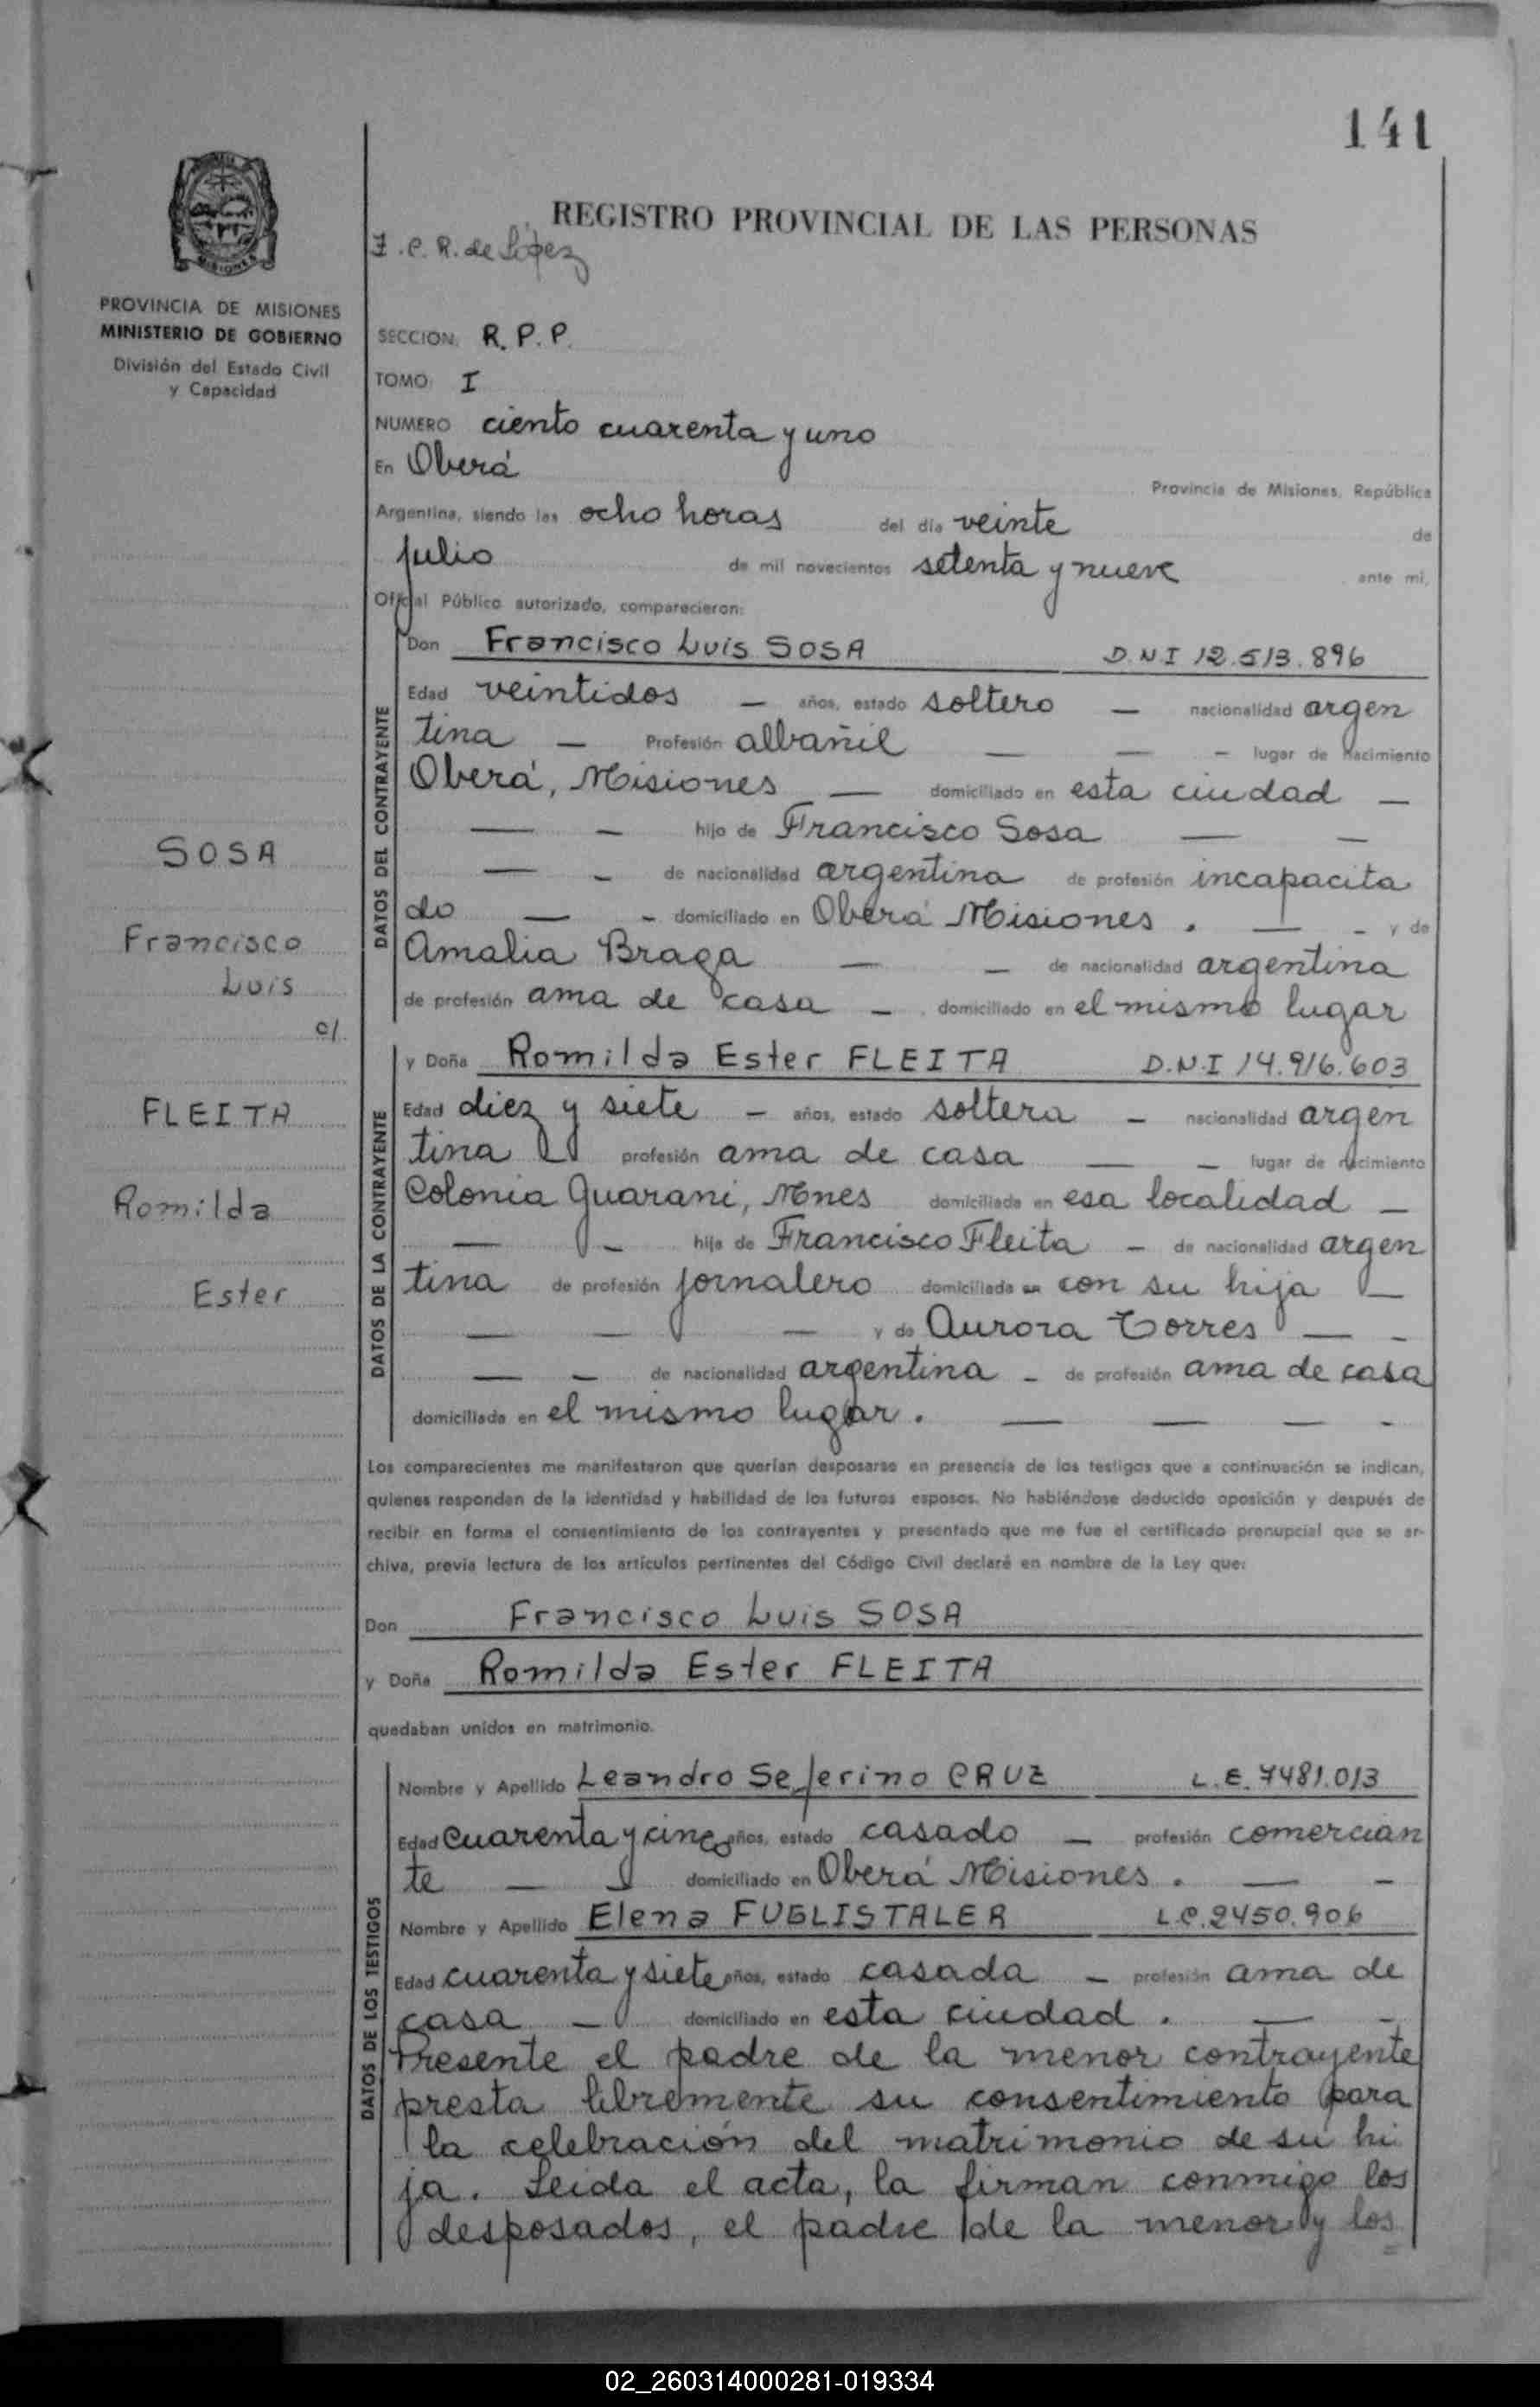 141
REGISTRO PROVINCIAL DE LAS PERSONAS
I.C.R. de López
MISIONES
PROVINCIA DE MISIONES
MINISTERIO DE GOBIERNO
División del Estado Civil
y Capacidad
SECCION: R. P. P.
TOMO: I
NUMERO ciento cuarenta y uno
En Oberá
Provincia de Misiones, República
Argentina, siendo las ocho horas del día veinte de
julio de mil novecientos setenta y nueve ante mi,
Oficial Público autorizado, comparecieron:
Don Francisco Luis SOSA D.N.I 12.513.896
DATOS DEL CONTRAYENTE
Edad veintidos — años, estado soltero — nacionalidad argen
tina — Profesión albañil — — — lugar de nacimiento
Oberá, Misiones — domiciliado en esta ciudad —
— — hijo de Francisco Sosa — —
— — de nacionalidad argentina de profesión incapacita
do — — domiciliado en Oberá Misiones . — — y de
Amalia Braga — — de nacionalidad argentina
de profesión ama de casa — domiciliado en el mismo lugar
SOSA
Francisco
Luis
c/.
FLEITA
Romilda
Ester
y Doña Romilda Ester FLEITA D.N.I 14.916.603
DATOS DE LA CONTRAYENTE
Edad diez y siete — años, estado soltera — nacionalidad argen
tina profesión ama de casa — — lugar de nacimiento
Colonia Guarani, Mnes domiciliada en esa localidad —
— — hija de Francisco Fleita — de nacionalidad argen
tina de profesión jornalero domiciliada en con su hija —
— — — y de Aurora Torres — -
— — de nacionalidad argentina - de profesión ama de casa
domiciliada en el mismo lugar . — — — -
Los comparecientes me manifestaron que querían desposarse en presencia de los testigos que a continuación se indican,
quienes responden de la identidad y habilidad de los futuros esposos. No habiéndose deducido oposición y después de
recibir en forma el consentimiento de los contrayentes y presentado que me fue el certificado prenupcial que se ar-
chiva, previa lectura de los artículos pertinentes del Código Civil declaré en nombre de la Ley que:
Don Francisco Luis SOSA
y Doña Romilda Ester FLEITA
quedaban unidos en matrimonio.
DATOS DE LOS TESTIGOS
Nombre y Apellido Leandro Seferino CRUZ L.E. 7481.013
Edad cuarenta y cinco años, estado casado — profesión comercian
te — domiciliado en Oberá Misiones . — —
Nombre y Apellido Elena FUGLISTALER L.C. 2450.906
Edad cuarenta y siete años, estado casada — profesión ama de
casa — domiciliado en esta ciudad . — -
Presente el padre de la menor contrayente
presta libremente su consentimiento para
la celebración del matrimonio de su hi
ja. Leida el acta, la firman conmigo los
desposados, el padre de la menor y los
02_260314000281-019334